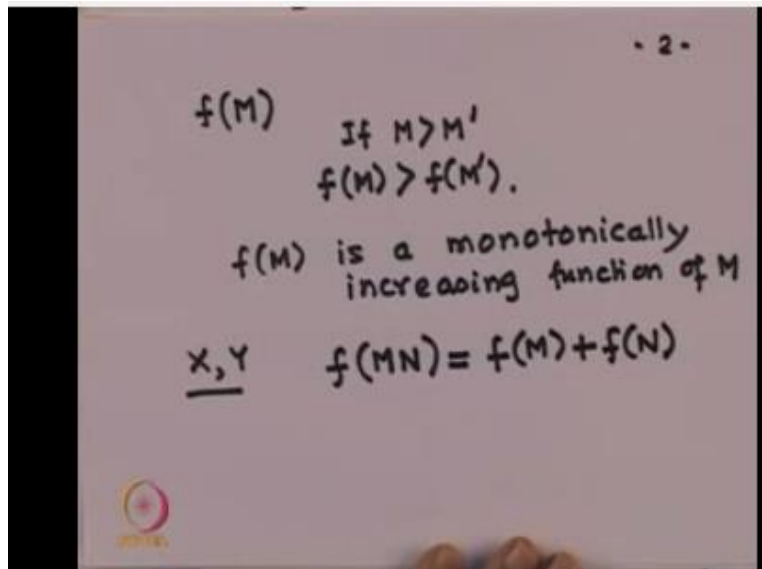 - 2 -
f(M)
If M > M'
f(M) > f(M').
f(M) is a monotonically
increasing function of M
X, Y f(MN) = f(M) + f(N)